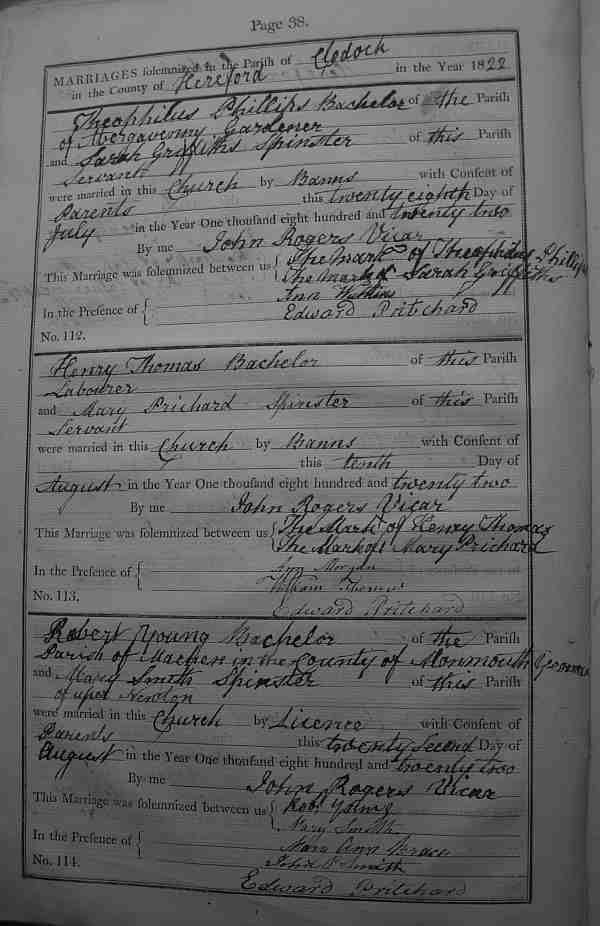 Page 38.
MARRIAGES solemnized in the Parish of Clodoch
in the County of Hereford in the Year 1822
Theophilus Phillips Bachelor of the Parish
of Abergavenny Gardener
and Sarah Griffiths Spinster of this Parish
Servant
were married in this Church by Banns with Consent of
Parents this twenty eighth Day of
July in the Year One thousand eight hundred and twenty two
By me John Rogers Vicar
This Marriage was solemnized between us { The Mark of Theophilus Phillips
The Mark of Sarah Griffiths
In the Presence of { Ann Watkins
Edward Pritchard
No. 112.
Henry Thomas Bachelor of this Parish
Labourer
and Mary Prichard Spinster of this Parish
Servant
were married in this Church by Banns with Consent of
this tenth Day of
August in the Year One thousand eight hundred and twenty two
By me John Rogers Vicar
This Marriage was solemnized between us { The Mark of Henry Thomas
The Mark of Mary Prichard
In the Presence of { Ann Morgan
William Thomas
No. 113. Edward Pritchard
Robert Young Bachelor of the Parish
Parish of Machen in the County of Monmouth Yeoman
and Mary Smith Spinster of this Parish
of uper Newton
were married in this Church by Licence with Consent of
Parents this twenty Second Day of
August in the Year One thousand eight hundred and twenty two
By me John Rogers Vicar
This Marriage was solemnized between us { Robt Young
Mary Smith
In the Presence of { Mary Ann
John Smith
No. 114.
Edward Pritchard